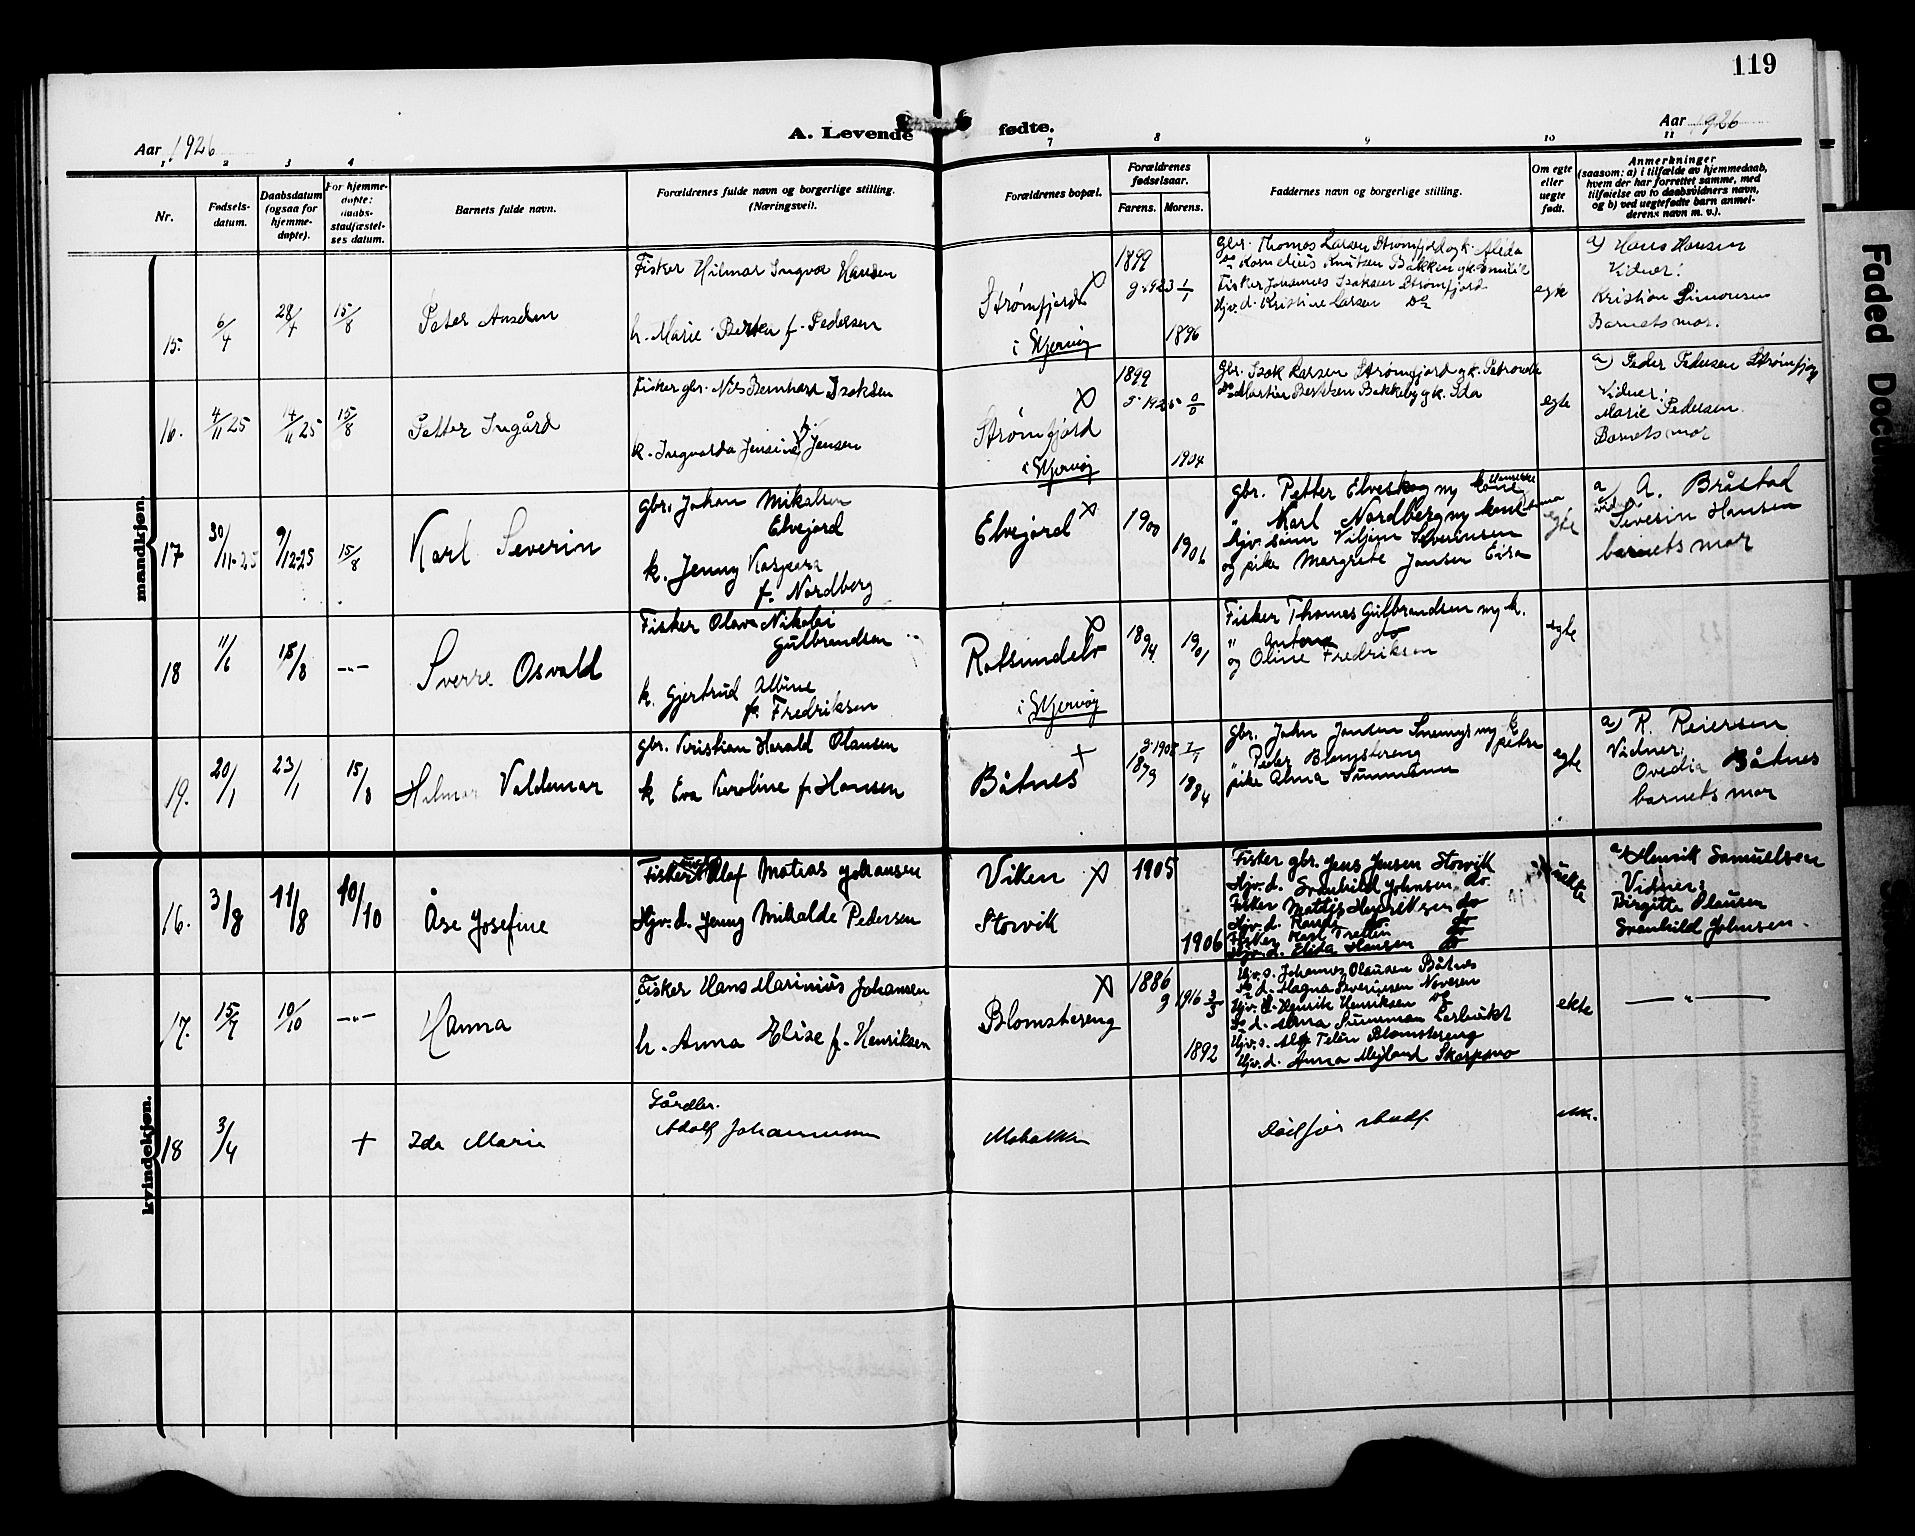 119
A. Levende fødte.
Aar 1926
Aar 1926
1 2 3 4 7 8 9 10 11
Nr.
Fødsels-
datum.
Daabsdatum
(ogsaa for
hjemme-
døpte).
For hjemme-
døpte:
daabs-
stadfæstel-
ses datum.
Barnets fulde navn.
Forældrenes fulde navn og borgerlige stilling.
(Næringsvei).
Forældrenes bopæl.
Forældrenes
fødselsaar.
Farens. Morens.
Faddernes navn og borgerlige stilling.
Om egte
eller
uegte
født.
Anmerkninger
(saasom: a) i tilfælde av hjemmedaab,
hvem der har forrettet samme, med
tilføielse av to daabsvidners navn,
og b) ved uegtefødte barn anmel-
derens navn m. v.).
mandkjøn.
15. 6/4 28/4 15/8
Fisker Hilmar Ingvar Hansen
h. Marie Berten f. Pedersen
Strømfjord X
i Skjervøy
1899
g. 1923 1/1
1896
gbr. Thomas Larsen Strømfjord og k. Alida
do Kornelius Knutsen Bakken og k. Emilie
Fisker Johannes Isaksen Strømfjord
Hjv. d. Kristine Larsen do
egte
a) Hans Hansen
Vidner:
Kristian Simonsen
Barnets mor.
16. 4/11 25 14/11 25 15/8
Petter Ingård
Fisker gbr. Nils Bernhard Isaksen
k. Ingvalda Jensine f. Jensen
X
Strømfjord
i Skjervøy
1899
g. 1925
1904
gbr. Isak Larsen Strømfjord og k. Petronelle
do Martin Bertsen Bakkeby og k. Ida
egte
a) Peder Pedersen Strømfjord
Vidner:
Marie Pedersen
Barnets mor
17 30/11-25 9/12-25 15/8
Karl Severin
gbr. Johan Mikalsen
Elvejord
k. Jenny Kaspara
f. Nordberg
Elvejord X
1900
1906
gbr. Petter Elveskog m/ kone
" Karl Nordberg m/ kone
Hjv. sønn Viljam Severinsen
og pike Margrete Jensen
egte
a A. Bråstad
vid. Severin Hansen
barnets mor
18 11/6 15/8 -"-
Sverre Osvald
Fisker Olav Nikolai
Gulbrandsen
k. Gjertrud Albine
f. Fredriksen
X
Rotsundelv
i Skjervøy
1894 1901
Fisker Thomas Gulbrandsen m/ k.
" Anton do
og Oline Fredriksen
egte
19. 20/1 23/1 15/8
Hilmar Valdemar
gbr. Kristian Herald Olausen
k Eva Karoline f. Hansen
+
Båtnes
g. 1908
1879
1884
gbr. John Jensen m/ k Petra
" Peder Blomstereng
pike Alma
egte
a) R. Reiersen
Vidner:
Ovedia Båtnes
barnets mor
kvindekjøn.
16. 3/8 11/8 10/10
Åse Josefine
Fisker Olaf Matias Johansen
Hjv. d. Jenny Mikalde Pedersen
Viken X
Storvik
1905
1906
Fisker gbr. Jens Jensen Storvik
Hjv. d. Svanhild Johnsen do.
Fisker Mathis Henriksen do
Hjv. d. Ranja do do
Fisker Karl Tretten do
Hjv. d. Elida Hansen do
uekte
a) Henrik Samuelsen
Vidner:
Birgitte Olausen
Svanhild Johnsen.
17. 15/7 10/10 -"-
Hanna
Fisker Hans Marinius Johansen
h. Anna Elise f. Henriksen
X
Blomstereng
1886
g 1916 3/3
1892
Hjv. s. Johannes Olausen Båtnes
do d. Magna Severinsen Naveren
Hjv. s. Henrik Henriksen do
do d. Alma
Hjv. s. Alf Telén Blomstereng
Hjv. d. Anna Mejland
ekte
— " —
18 3/4 +
Ida Marie
Gårdbr.
Adolf Johannessen
ekt.
Faded Docu